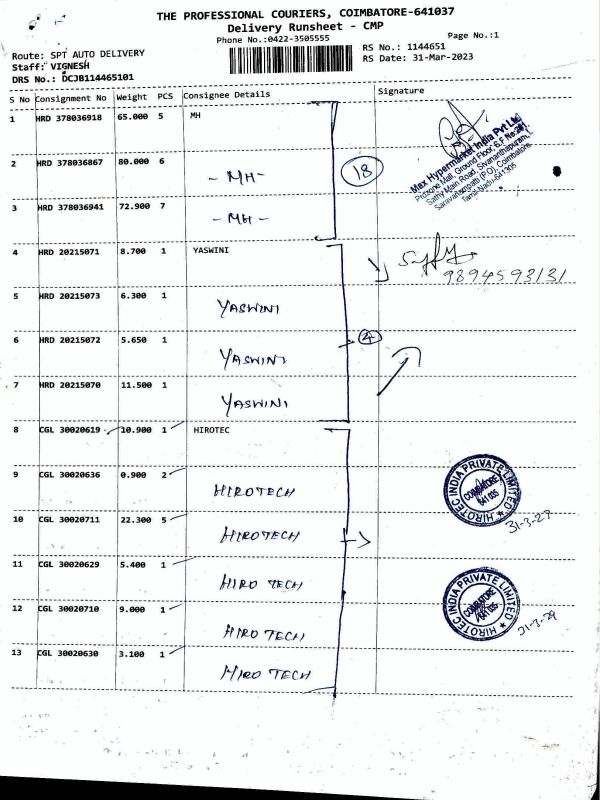 THE PROFESSIONAL COURIERS, COIMBATORE-641037
Delivery Runsheet - CMP
Phone No.:0422-3505555
Page No.:1
Route: SPT AUTO DELIVERY
Staff: VIGNESH
DRS No.: DCJB114465101
RS No.: 1144651
RS Date: 31-Mar-2023
S No Consignment No Weight PCS Consignee Details Signature
1 HRD 378036918 65.000 5 MH
2 HRD 378036867 80.000 6 - MH -
18
3 HRD 378036941 72.900 7 - MH -
Max Hypermarket India Pvt Ltd
Prozone Mall, Ground Floor, S.F No:281,
Sathy Main Road, Sivananthapuram,
Saravanampatti (P.O), Coimbatore,
Tamil Nadu-641305
4 HRD 20215071 8.700 1 YASWINI
9894593131
5 HRD 20215073 6.300 1 YASWINI
6 HRD 20215072 5.650 1 YASWINI
4
7 HRD 20215070 11.500 1 YASWINI
8 CGL 30020619 10.900 1 HIROTEC
9 CGL 30020636 0.900 2 HIROTECH
HIROTEC INDIA PRIVATE LIMITED
COIMBATORE
641 035
10 CGL 30020711 22.300 5 HIROTECH
11 CGL 30020629 5.400 1 HIRO TECH
12 CGL 30020710 9.000 1 HIRO TECH
HIROTEC INDIA PRIVATE LIMITED
COIMBATORE
641 035
13 CGL 30020630 3.100 1 HIRO TECH